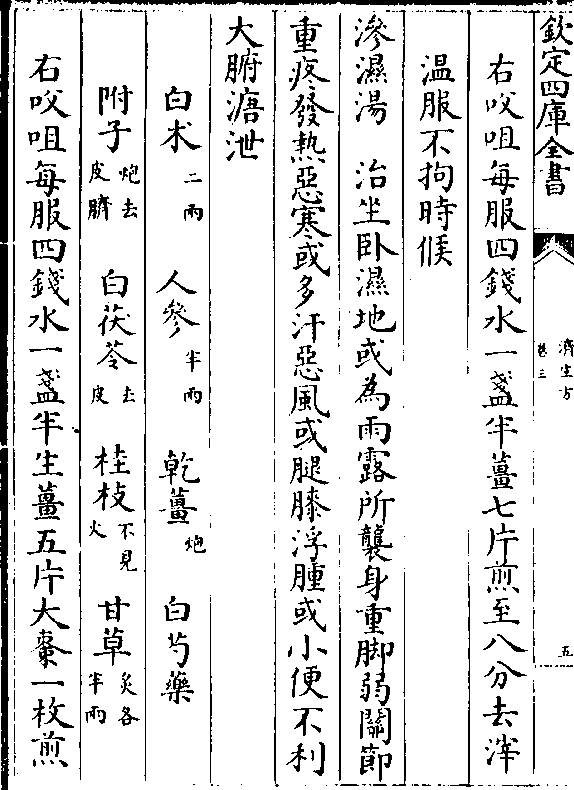 欽定四庫全書
濟生方
卷三
五
右㕮咀每服四錢水一盞半薑七片煎至八分去滓
溫服不拘時候
滲濕湯　治坐卧濕地或為雨露所襲身重脚弱關節
重疼發熱惡寒或多汗惡風或腿膝浮腫或小便不利
大腑溏泄
白术二兩　人參半兩　乾薑炮　白芍藥
附子炮去皮臍　白茯苓去皮　桂枝不見火　甘草炙各半兩
右㕮咀每服四錢水一盞半生薑五片大棗一枚煎